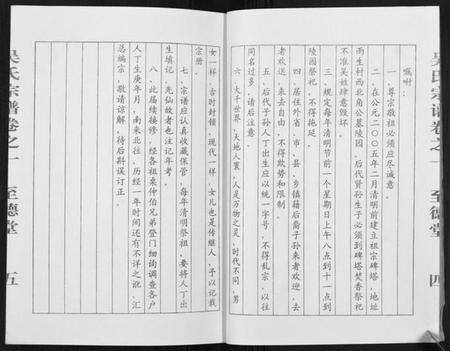 吴氏宗谱卷之一 至德堂 四
嘱咐：
一、尊宗敬祖必须应尽诚意。
二、在公元二〇〇五年二月清明前建立祖宗碑塔，地址
西生村西北角公墓陵园，后代贤孙生子必须到碑塔焚香祭祀
不准吴姓肆意毁坏。
三、规定每年清明节前一个星期日上午八点到十一点到
陵园祭祀，不得拖延。
四、居住外省、市、县、乡镇籍后裔子孙来者欢迎，去
者欢送，来去自由，不得欺势和限制。
五、后代子孙人丁出生应以统一字号，不得乱宗，以往
同名过多，请后注意。
六、大千世界，天地人寰，人是万物之灵，时代不同，男
女一样，古时封锁，现代一样，女儿也是传继人，予以记载
宗册。
七、宗谱应认真收藏保管，每年清明祭祖，要将人丁出
生填记，先仙故者也注记年考。
八、此届续接修，经各祖来仲伯兄弟登门细询调查各户
人丁生庚年月，南来北往，历经一年时间还有不详之说，汇
总编宗，敬请谅解，待后斟误订正。
吴氏宗谱卷之一 至德堂 五